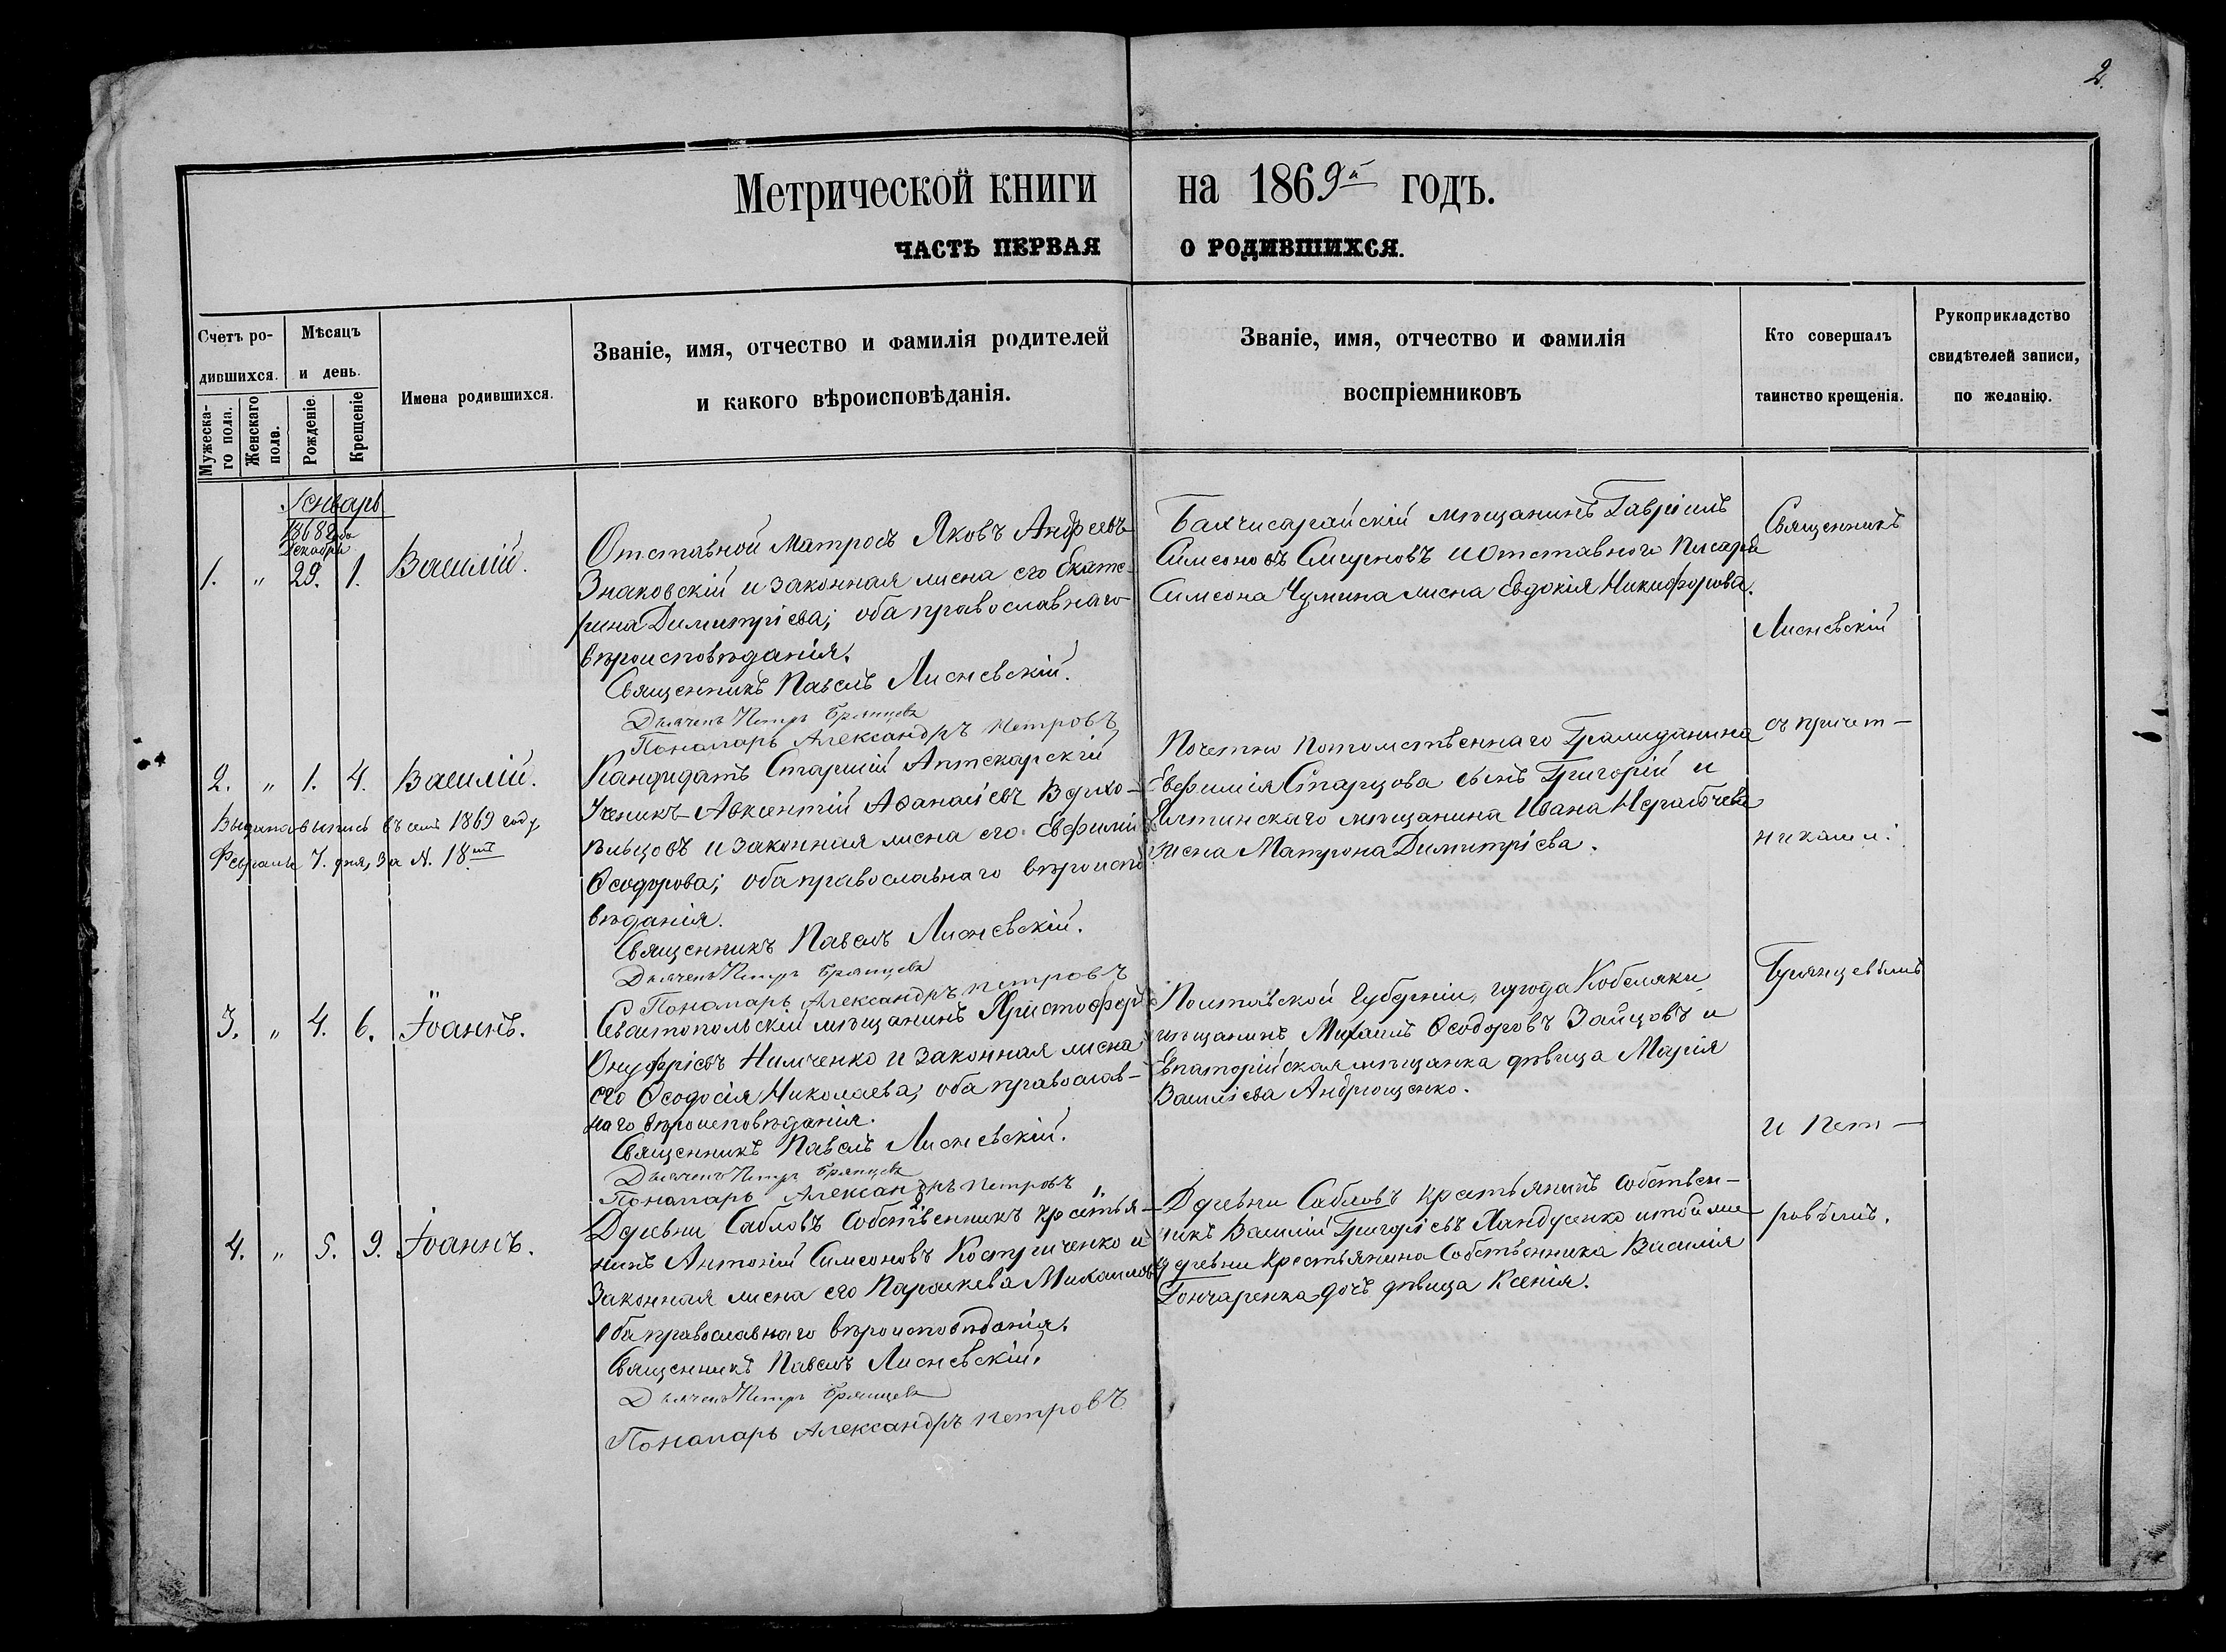 2.
Метрической книги на 1869й годъ.
ЧАСТЬ ПЕРВАЯ О РОДИВШИХСЯ.
Счетъ ро-
дившихся.
Мужеска-
го пола.
Женскаго
пола.
Мѣсяцъ
и день.
Рожденіе.
Крещеніе
Имена родившихся.
Званіе, имя, отчество и фамилія родителей
и какого вѣроисповѣданія.
Званіе, имя, отчество и фамилія
воспріемниковъ
Кто совершалъ
таинство крещенія.
Рукоприкладство
свидѣтелей записи,
по желанію.
Январь
1868 года
Декабря
1. " 29. 1. Василій.
Отставной матросъ Яковъ Андреевъ
Знаковскій и законная жена его Екате-
рина Димитріева; оба православнаго
вѣроисповѣданія.
Священникъ Павелъ Лисневскій.
Дьячекъ Петръ Брянцевъ
Пономарь Александръ Петровъ
Бахчисарайскій мѣщанинъ Гавріилъ
Симеоновъ Смирновъ и Отставного Писаря
Симеона Чумина жена Евдокія Никифорова.
2. " 1. 4. Василій.
Выдана выпись въ семъ 1869 году,
Февраля 7. дня, за N. 18мъ
Кандидатъ Старшій Аптекарскій
Ученикъ Авксентій Аѳанасіевъ Верхо-
вивцовъ и законная жена его Евфимія
Ѳеодорова; оба православнаго вѣроиспо
вѣданія.
Священникъ Павелъ Лисневскій.
Дьячекъ Петръ Брянцевъ
Пономарь Александръ Петровъ
Почетно Потомственнаго Гражданина
Евфимія Старцова сынъ Григорій и
Ялтинскаго мѣщанина Ивана
жена Матрона Димитріева.
3. " 4. 6. Іоаннъ.
Севастопольскій мѣщанинъ Христофоръ
Онуфріевъ Нимченко и законная жена
его Ѳеодосія Николаева; оба православ-
наго вѣроисповѣданія.
Священникъ Павелъ Лисневскій.
Дьячекъ Петръ Брянцевъ
Пономарь Александръ Петровъ
Полтавской Губерніи, города Кобеляки
мѣщанинъ Михаилъ Ѳеодоровъ Зайцовъ и
Евпаторійская мѣщанка дѣвица Марія
Василіева Андрющенко.
4. " 5. 9. Іоаннъ.
Деревни Сабловъ Собственникъ крестья-
нинъ Антоній Симеоновъ Костриченко и
Законная жена его Параскева Михаилова
Оба православнаго вѣроисповѣданія.
Священникъ Павелъ Лисневскій.
Дьячекъ Петръ Брянцевъ
Пономарь Александръ Петровъ
Деревни Сабловъ крестьянинъ Собствен-
никъ Василій Григоріевъ и той же
деревни Крестьянина Собственника Василія
Гончаренка дочь дѣвица Ксенія.
Священникъ
Лисневскій
съ причет-
никами:
Брянцевымъ
и Пет-
ровымъ.